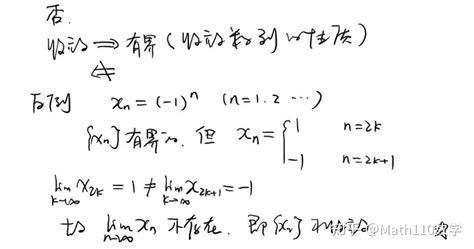 否.
收敛 ⟹ 有界 (收敛数列的性质)
⟸̸
反例 xₙ = (-1)ⁿ (n=1.2 ⋯)
{xₙ} 有界的. 但 xₙ = { 1 n=2k
-1 n=2k+1
lim k→∞ x₂ₖ = 1 ≠ lim k→∞ x₂ₖ₊₁ = -1
故 lim n→∞ xₙ 不存在. 即 {xₙ} 不收敛
知乎 @Math110数学